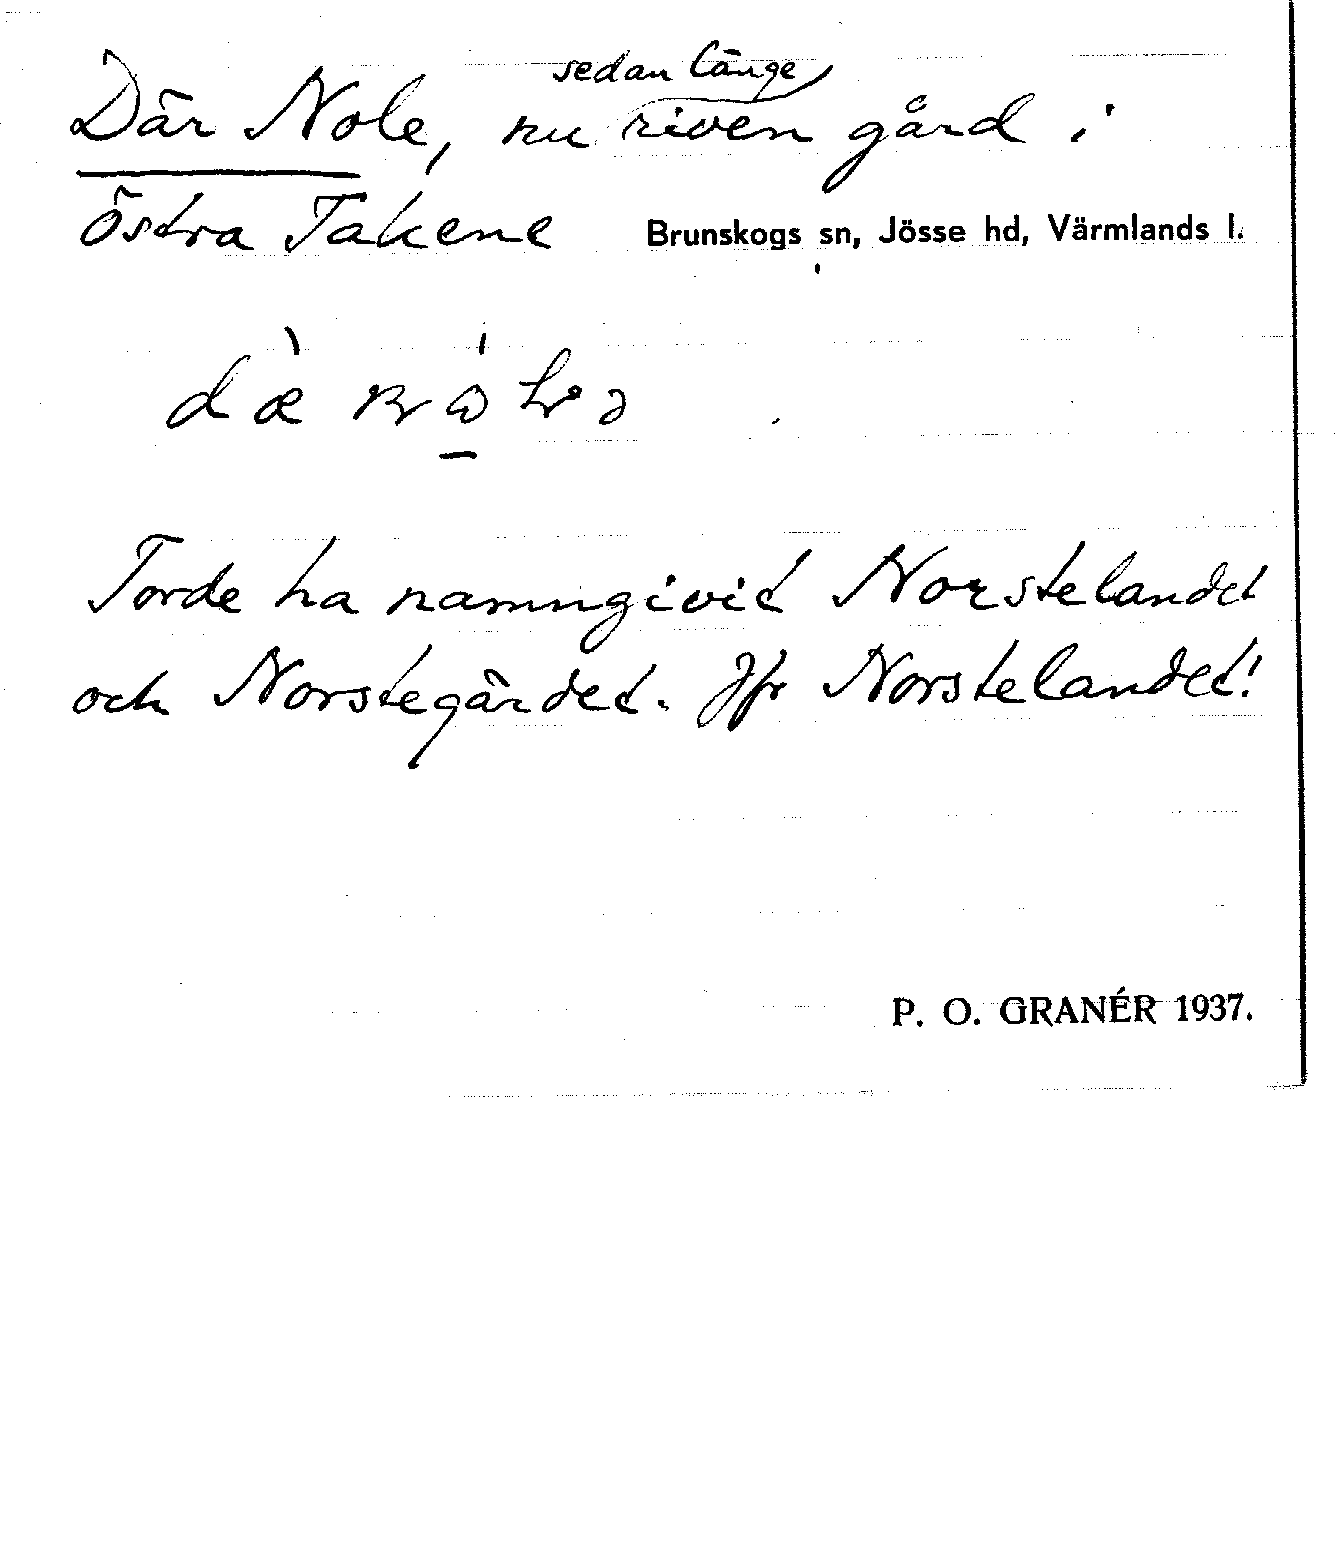 sedan länge
Där Nole, nu riven gård i
Östra Takene Brunskogs sn, Jösse hd, Värmlands l.
Torde ha namngivit Norstelandet
och Norstegärdet. Jfr Norstelandet!
P. O. GRANÉR 1937.